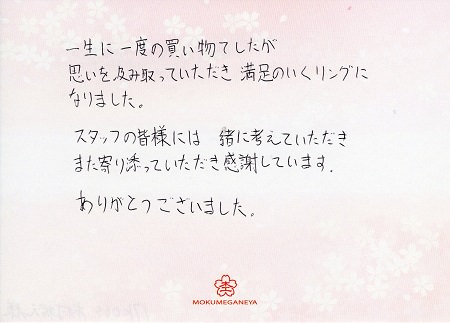 一生に一度の買い物でしたが
思いを汲み取っていただき 満足のいくリングに
なりました。
スタッフの皆様には 一緒に考えていただき
また寄り添っていただき感謝しています.
ありがとうございました。
MOKUMEGANEYA